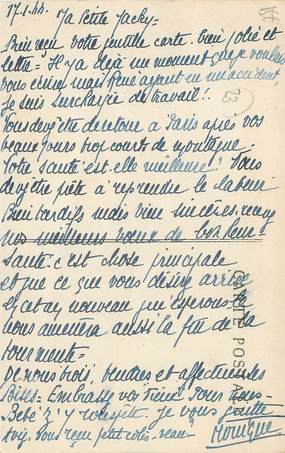 17.1.44.
Ma Petite Jacky-
Bien reçu votre gentille carte. bien jolie et
lettre= Il y a déjà un moment que je voulais
vous écrire mais René ayant eu un accident,
Je suis surchargée de travail!..
Vous devez être de retour à Paris après vos
beaux jours trop courts de montagne-
Votre santé est-elle meilleure? Vous
devez être prête à reprendre le labeur
Bien tardifs mais bien sincères. recevez
nos meilleurs voeux de
santé. c'est chose principale
et que ce que vous désirez arrive
et cet an nouveau que espérons-le
nous amènera aussi la fin de la
tourmente=
De nous trois, tendres et affectueuses
Bises= Embrassez vos "tiens" Pour nous-
Bébé 2 1/2 je vous quitte
Avez vous reçu petit colis
Monique
CARTE POSTALE
23